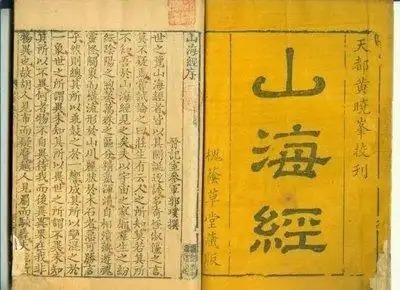 天都黄曉峯校刊
山海經
槐蔭草堂藏版
山海經序
晉記室參軍郭璞撰
世之覽山海經者皆以其閎誕迂誇多奇怪俶儻之言
莫不疑焉嘗試論之曰莊生有云人之所知莫若其所
不知吾於山海經見之矣夫以宇宙之寥廓群生之紛
紜陰陽之煦蒸萬殊之區分精氣渾淆自相濆薄遊魂
靈怪觸象而構流形於山川麗狀於木石者惡可勝言
乎然則總其所以乖鼓之於一響成其所以變混之於
一象世之所謂異未知其所以異世之所謂不異未知
其所以不異何者物不自異待我而後異異果在我非
物異也故胡人見布而疑黂越人見罽而駭毳